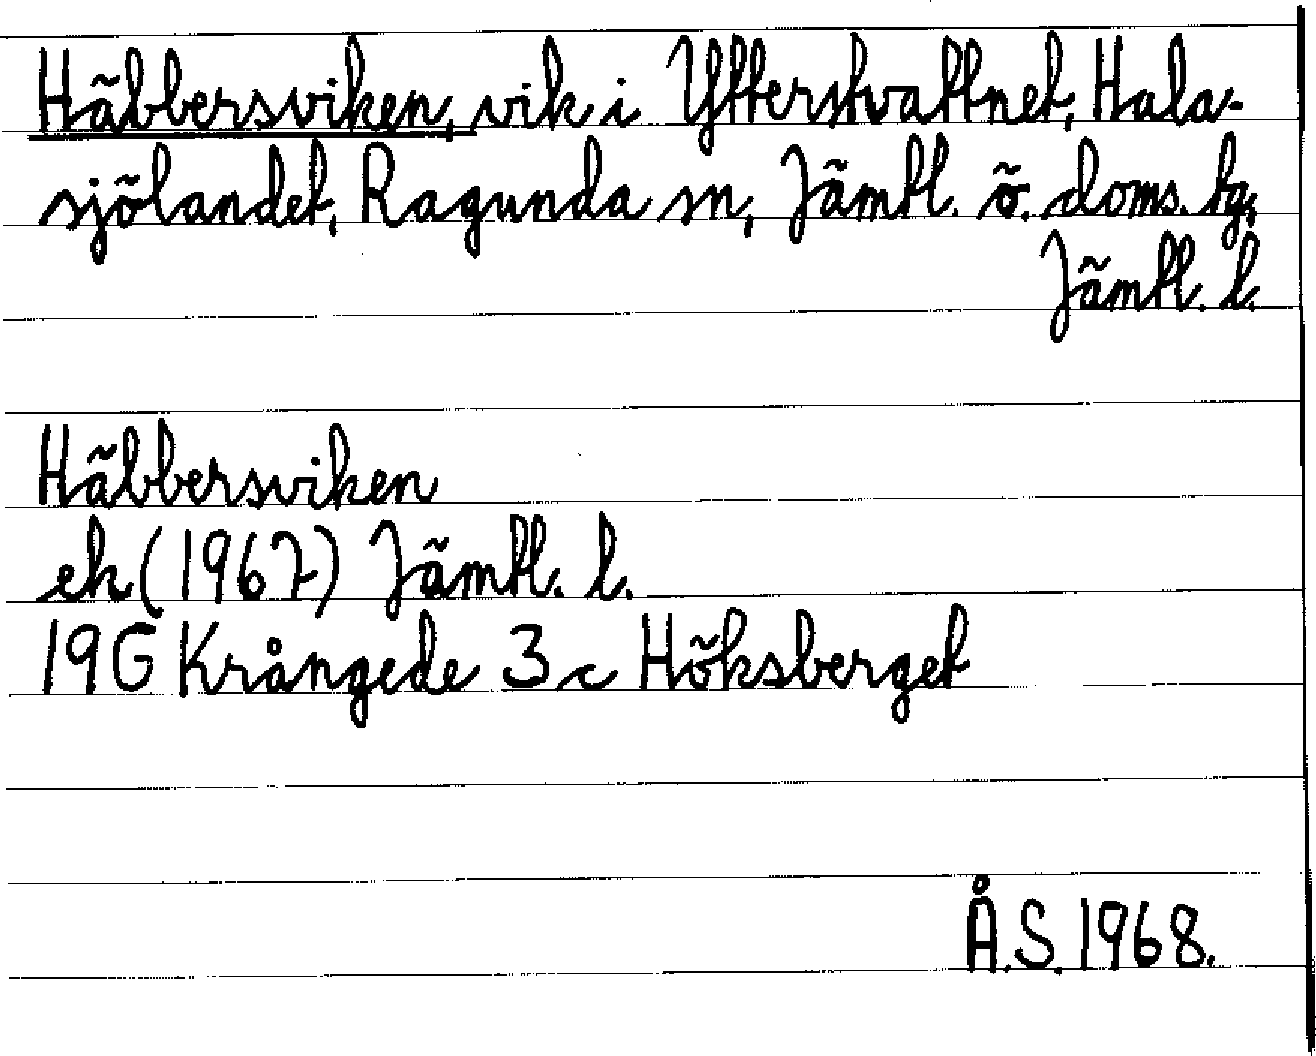 Häbbersviken, vik i Ytterstvattnet, Hala-
sjölandet, Ragunda sn, Jämtl. ö. doms. tg,
Jämtl. l.
Häbbersviken
ek (1967) Jämtl. l.
19G Krångede 3c Höksberget
Å.S. 1968.